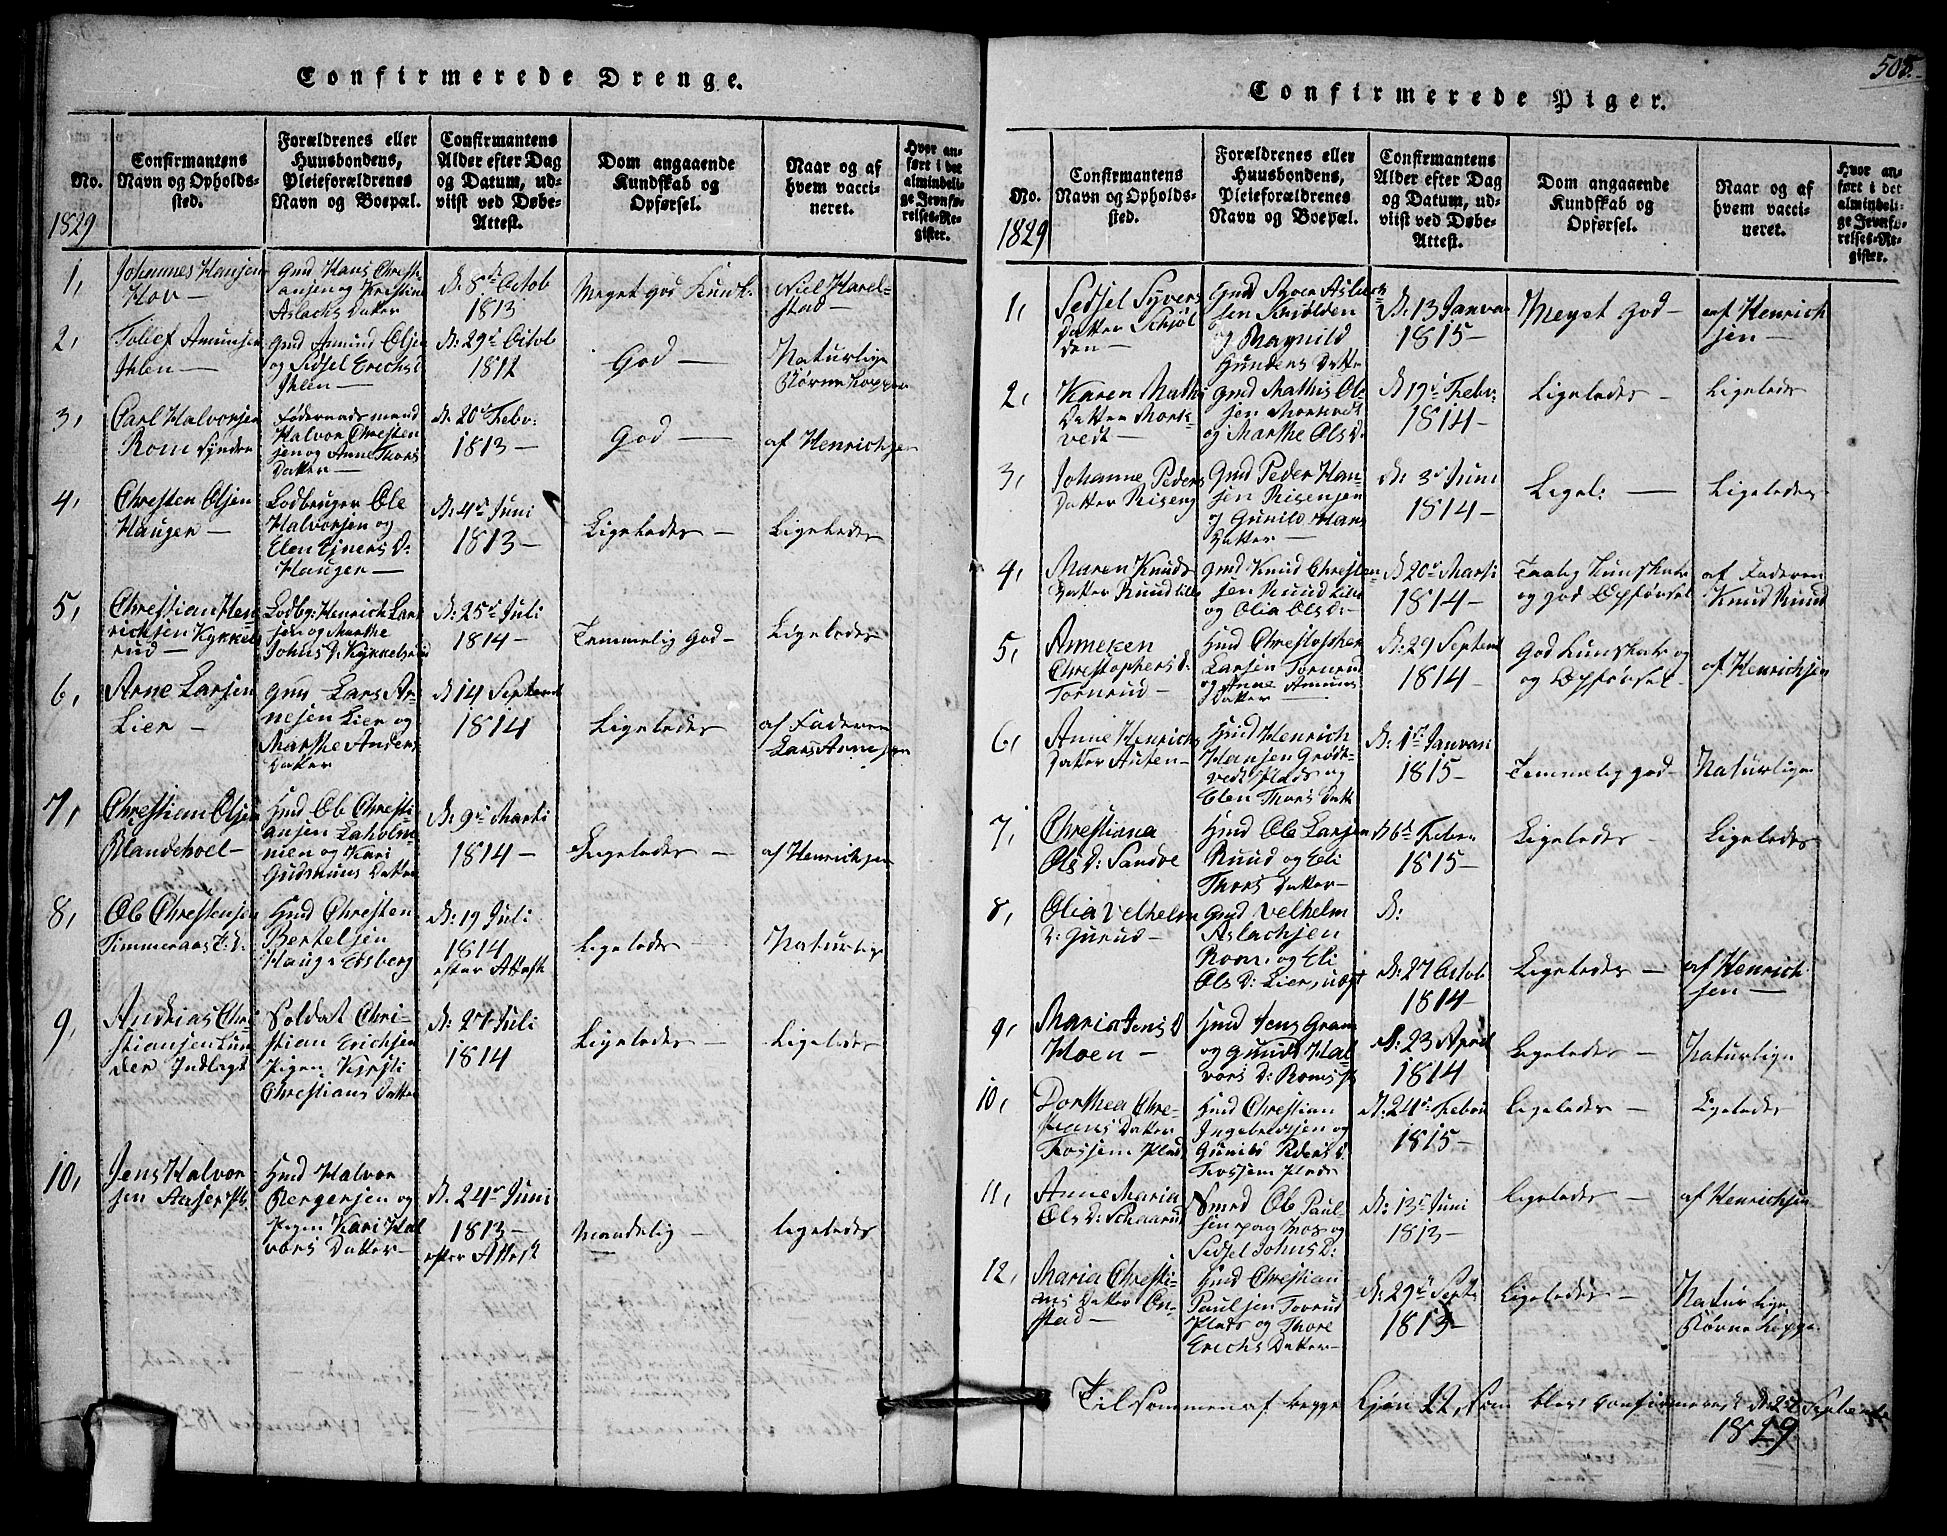 Confirmerede Drenge.
No.
Confirmantens
Navn og Opholds-
sted.
Forældrenes eller
Huusbondens,
Pleieforældrenes
Navn og Boepæl.
Confirmantens
Alder efter Dag
og Datum, ud-
viist ved Døbe-
Attest.
Dom angaaende
Kundskab og
Opførsel.
Naar og af
hvem vacci-
neret.
Hvor an-
ført i det
almindeli-
ge Jevnfø-
relses-Re-
gister.
1829
1,
Johannes Hansen
Hov —
Gmd Hans Christi-
ansen og Kristine
Aslachs Datter
D: 8de Octob
1813
Meget god Kundk.
Niel Harel-
stad —
2,
Tollef Amunsen
Ihlen —
Gmd Amund Olsen
og Sidsel Erichs D
Ihlen —
D: 29d Octob
1812
God —
Naturlige
Børnekopper
3,
Carl Halvorsen
Rom Syndre
Halvor Chresten
sen og Anne Thors
Datter —
D: 20d Febr:
1813 —
God —
af Henrichsen
4,
Chresten Olsen
Haugen —
Lodbruger Ole
Halvorsen og
Elen Ejners D:
Haugen —
D: 4de Juni
1813 —
Ligeledes —
Ligeledes
5,
Christian Hen
richsen Kykkels
rud —
Lodbg: Henrich Lar
sen og Marthe
Johns D: Kykkelsrud
D: 25d Juli
1814 —
Temmelig God —
Ligeledes
6,
Arne Larsen
Lier —
Gmd Lars Ar-
nesen Lier og
Marthe Anders
Datter
D 14 Septemb
1814
Ligeledes
af Faderen
Lars Arnesen
7,
Christian Olsen
Blandehoel —
Hmd Ole Christi-
ansen Laholm-
men og Kari
Gudmuns Datter
D: 9de Marti
1814 —
Ligeledes —
af Henrichsen
8,
Ole Christensen
Timmeraas E. D.
Hmd Chresten
Bertelsen
Haug i Edsberg
D: 19 Juli
1814
efter Attest
Ligeledes —
Naturlige
9,
Andrias Chri
stiansen Lun
der Indlagt
Soldat Chri-
stian Erichsen
Pigen Kirsti
Christians Datter
D: 27 Juli
1814
Ligeledes —
Ligeledes
10,
Jens Halvor-
sen Aaser Pl:
Hmd Halvor
Bergersen og
Pigen Kari Hal
vors Datter —
D: 24de Juni
1813 —
efter Attest
Maadelig —
ligeledes
505.
Confirmerede Piger.
No.
Confirmantens
Navn og Opholds-
sted.
Forældrenes eller
Huusbondens,
Pleieforældrenes
Navn og Boepæl.
Confirmantens
Alder efter Dag
og Datum, ud-
viist ved Døbe-
Attest.
Dom angaaende
Kundskab og
Opførsel.
Naar og af
hvem vacci-
neret.
Hvor an-
ført i det
almindeli-
ge Jevnfø-
relses-Re-
gister.
1829
1,
Sedsel Syvers
Datter Schjøl
den —
Gmd Syver Aslach
sen Skiølden
og Magnild
Gunders Datter
D: 13 Januar
1815 —
Meget God —
af Henrich
sen —
2,
Karen Mathis
Datter Mork
vedt —
Gmd Mathis Ol-
sen Morkvedt
og Marthe Ols D:
D 19d Febr:
1814 —
Ligeledes —
Ligeledes
3,
Johanne Peders
Datter Riseng
Gmd Peder Han-
sen Risengen
og Gunild Hans
Datter —
D: 3d Juni
1814 —
Ligel: —
Ligeledes
4,
Maren Knuds
Datter Ruud lille
Gmd Knud Chresten-
sen Ruud Lille
og Olia Ols D:
D: 20d Marti
1814 —
Taalig Kunskab
og god Opførsel
af Faderen
Knud Ruud
5,
Anneken
Christophers D:
Tornrud —
Hmd Christopher
Larsen Tornrud
og Anne Amuns
Datter —
D: 29 Septem
1814 —
God Kunskab og
og Opførsel —
af Henrichsen
6,
Anne Henrichs
Datter Auten —
Hmd Henrich
Hansen Grødt-
vedt Plads og
Elen Thors Datt
D: 1de Januari
1815 —
Temmelig god —
Naturlige
7,
Christiana
Ols D: Sandve
Hmd Ole Larsen
Ruud og Eli
Thors Datter —
D 6d Febr
1815 —
Ligeledes —
Ligeledes
8,
Olia Velhelm
D: Gurud —
Gmd Velhelm
Aslachsen
Rom og Eli
Ols D: Lier, uægt
D:
D: 27 Octob
1814 —
Ligeledes —
af Henrich
sen —
9,
Maria Jens D
Hoen —
Hmd Jens Gram
og Gunild Hal
vors D: Roms Pl
D: 23 April
1814
Ligeledes —
Naturlige
10,
Dorthea Chre-
stians Datter
Fossem Plads
Hmd Christian
Ingebretsen og
Gunild Peders D
Fossem Plads
D: 24de Febru
1815 —
Ligeledes —
Ligeledes
11,
Anne Maria
Ols D: Schaarud
Smed Ole Paul
sen paa Moss og
Sidsel Johns D:
D: 13d Juni
1813 —
Ligeledes —
af Henrichsen
12,
Maria Christi-
ans Datter On-
stad —
Hmd Christian
Paulsen Tovrud
Plads og Thore
Erichs Datter —
D: 29d Sept.
1813 —
Ligeledes —
Naturlige
Børnekopper
Tilsommen af begge Kjøn 22, som blev Confirmeret D. 27 September
1829